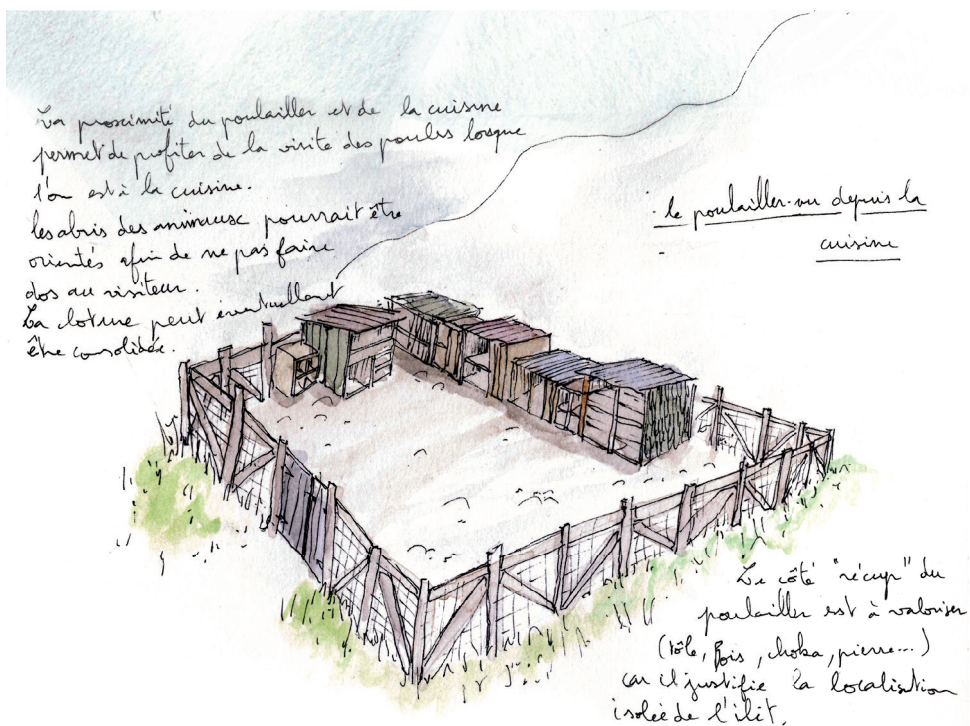 La proximité du poulailler et de la cuisine
permet de profiter de la visite des poules losque
l'on est à la cuisine.
les abris des animaux pourrait être
orientés afin de ne pas faire
dos au visiteur.
La cloture peut éventuellement
être consolidée.
le poulailler vu depuis la
cuisine
Le côté "récup" du
poulailler est à valoriser
(tôle, Bois, choka, pierre...)
car il justifie la localisation
isolée de l'ilèt.